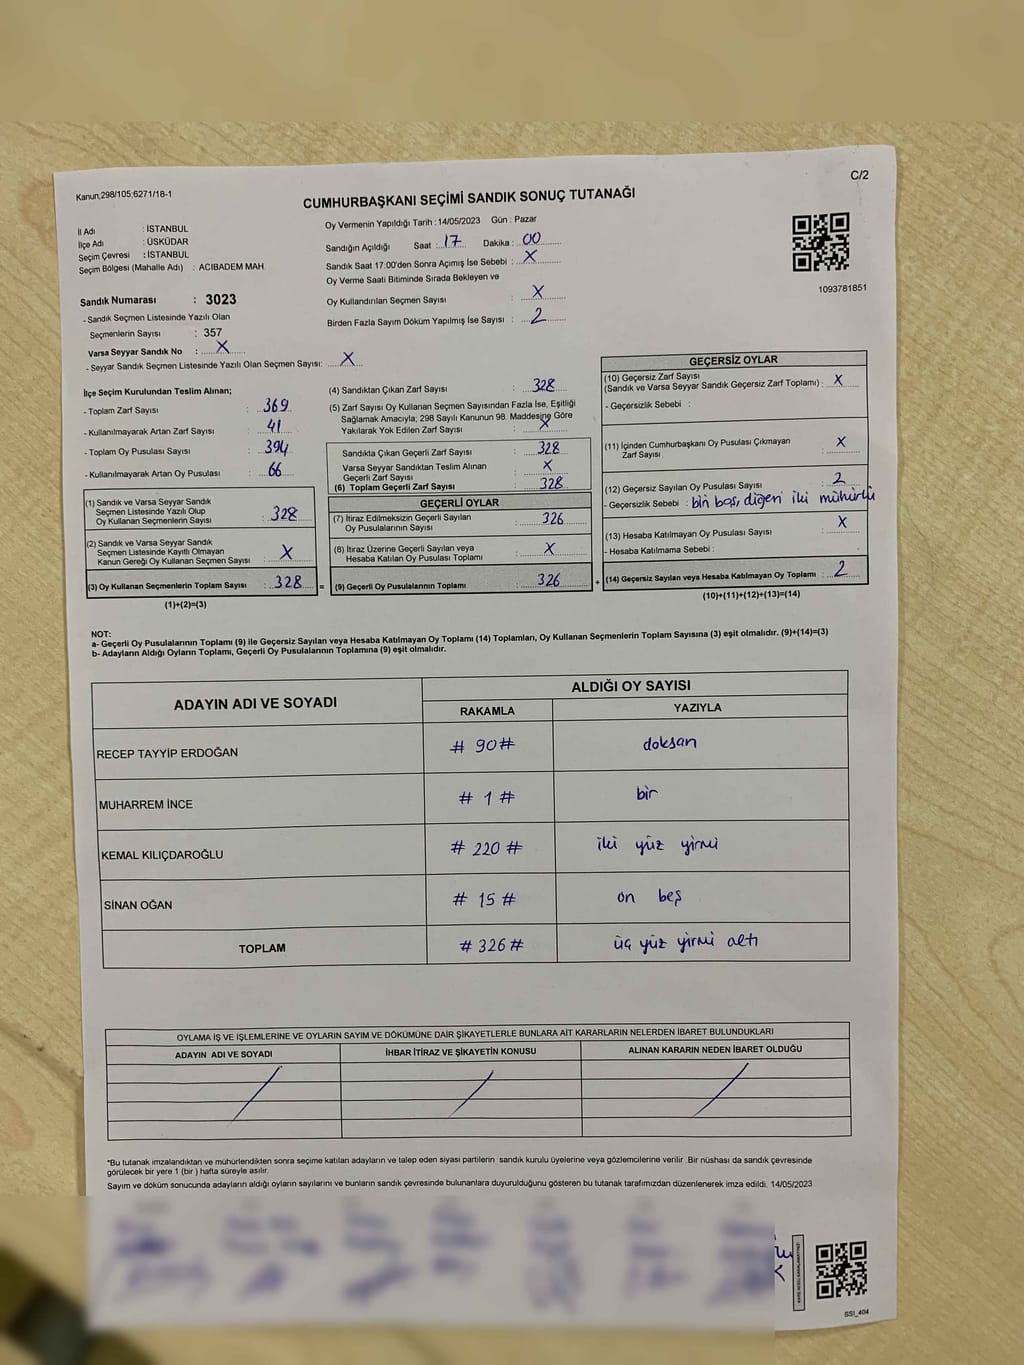 Kanun;298/105;6271/18-1
C/2
CUMHURBAŞKANI SEÇİMİ SANDIK SONUÇ TUTANAĞI
İl Adı : İSTANBUL
İlçe Adı : ÜSKÜDAR
Seçim Çevresi : İSTANBUL
Seçim Bölgesi (Mahalle Adı) : ACIBADEM MAH
Sandık Numarası : 3023
- Sandık Seçmen Listesinde Yazılı Olan
Seçmenlerin Sayısı : 357
Varsa Seyyar Sandık No : X
- Seyyar Sandık Seçmen Listesinde Yazılı Olan Seçmen Sayısı: X
Oy Vermenin Yapıldığı Tarih : 14/05/2023 Gün : Pazar
Sandığın Açıldığı Saat : 17 Dakika : 00
Sandık Saat 17:00'den Sonra Açımış İse Sebebi : X
Oy Verme Saati Bitiminde Sırada Bekleyen ve
Oy Kullandırılan Seçmen Sayısı : X
Birden Fazla Sayım Döküm Yapılmış İse Sayısı : 2
1093781851
İlçe Seçim Kurulundan Teslim Alınan;
- Toplam Zarf Sayısı : 369
- Kullanılmayarak Artan Zarf Sayısı : 41
- Toplam Oy Pusulası Sayısı : 394
- Kullanılmayarak Artan Oy Pusulası : 66
(1) Sandık ve Varsa Seyyar Sandık
Seçmen Listesinde Yazılı Olup
Oy Kullanan Seçmenlerin Sayısı : 328
(2) Sandık ve Varsa Seyyar Sandık
Seçmen Listesinde Kayıtlı Olmayan
Kanun Gereği Oy Kullanan Seçmen Sayısı : X
(3) Oy Kullanan Seçmenlerin Toplam Sayısı : 328 =
(1)+(2)=(3)
(4) Sandıktan Çıkan Zarf Sayısı : 328
(5) Zarf Sayısı Oy Kullanan Seçmen Sayısından Fazla İse, Eşitliği
Sağlamak Amacıyla; 298 Sayılı Kanunun 98. Maddesine Göre
Yakılarak Yok Edilen Zarf Sayısı : X
Sandıkta Çıkan Geçerli Zarf Sayısı : 328
Varsa Seyyar Sandıktan Teslim Alınan
Geçerli Zarf Sayısı : X
(6) Toplam Geçerli Zarf Sayısı : 328
GEÇERLİ OYLAR
(7) İtiraz Edilmeksizin Geçerli Sayılan
Oy Pusulalarının Sayısı : 326
(8) İtiraz Üzerine Geçerli Sayılan veya
Hesaba Katılan Oy Pusulası Toplamı : X
(9) Geçerli Oy Pusulalarının Toplamı : 326 +
GEÇERSİZ OYLAR
(10) Geçersiz Zarf Sayısı
(Sandık ve Varsa Seyyar Sandık Geçersiz Zarf Toplamı) : X
- Geçersizlik Sebebi :
(11) İçinden Cumhurbaşkanı Oy Pusulası Çıkmayan
Zarf Sayısı : X
(12) Geçersiz Sayılan Oy Pusulası Sayısı : 2
- Geçersizlik Sebebi : biri boş, diğeri iki mühürlü
(13) Hesaba Katılmayan Oy Pusulası Sayısı : X
- Hesaba Katılmama Sebebi :
(14) Geçersiz Sayılan veya Hesaba Katılmayan Oy Toplamı : 2
(10)+(11)+(12)+(13)=(14)
NOT:
a- Geçerli Oy Pusulalarının Toplamı (9) ile Geçersiz Sayılan veya Hesaba Katılmayan Oy Toplamı (14) Toplamları, Oy Kullanan Seçmenlerin Toplam Sayısına (3) eşit olmalıdır. (9)+(14)=(3)
b- Adayların Aldığı Oyların Toplamı, Geçerli Oy Pusulalarının Toplamına (9) eşit olmalıdır.
ADAYIN ADI VE SOYADI
ALDIĞI OY SAYISI
RAKAMLA YAZIYLA
RECEP TAYYİP ERDOĞAN # 90 # doksan
MUHARREM İNCE # 1 # bir
KEMAL KILIÇDAROĞLU # 220 # iki yüz yirmi
SİNAN OĞAN # 15 # on beş
TOPLAM # 326 # üç yüz yirmi altı
OYLAMA İŞ VE İŞLEMLERİNE VE OYLARIN SAYIM VE DÖKÜMÜNE DAİR ŞİKAYETLERLE BUNLARA AİT KARARLARIN NELERDEN İBARET BULUNDUKLARI
ADAYIN ADI VE SOYADI İHBAR İTİRAZ VE ŞİKAYETİN KONUSU ALINAN KARARIN NEDEN İBARET OLDUĞU
*Bu tutanak imzalandıktan ve mühürlendikten sonra seçime katılan adayların ve talep eden siyasi partilerin sandık kurulu üyelerine veya gözlemcilerine verilir .Bir nüshası da sandık çevresinde
görülecek bir yere 1 (bir ) hafta süreyle asılır.
Sayım ve döküm sonucunda adayların aldığı oyların sayılarını ve bunların sandık çevresinde bulunanlara duyurulduğunu gösteren bu tutanak tarafımızdan düzenlenerek imza edildi. 14/05/2023
SSI_404